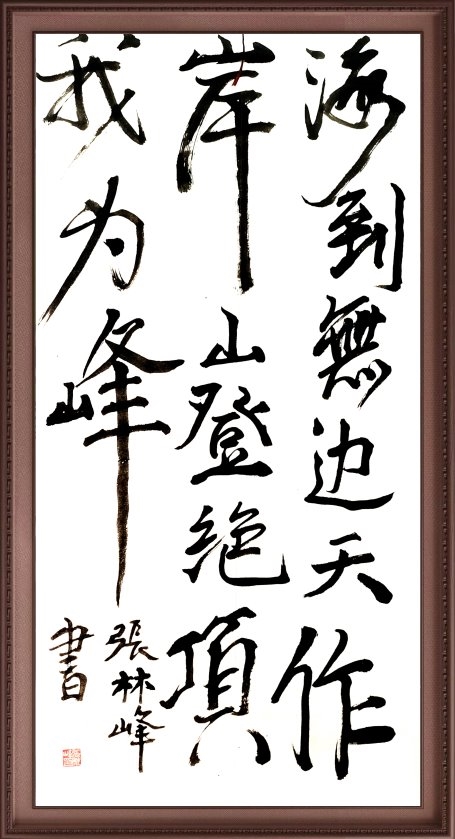 海到無边天作
岸山登绝頂
我为峰
張林峰
書